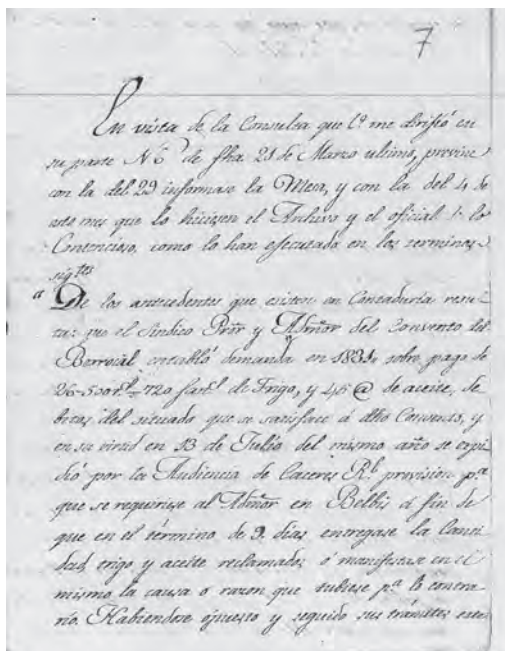 7
En vista de la Consulta que V. me dirijió en
su parte Nº 6º de fha 21 de Marzo ultimo, previne
con la del 29 informase la Mesa, y con la del 4 de
este mes que lo hiciesen el Archivo y el oficial 1º de lo
Contencioso, como lo han efecutado en los terminos
sigtes
De los antecedentes que existen en Contaduría resul
ta: que el Sindico Prőr y Admőr del Convento del
Berrocal entabló demanda en 1831, sobre pago de
720 fanˢ de Trigo, y 46 @ de aceite, de
del situado que se satisface á dho Convento, y
en su virtud en 13 de Julio del mismo año se expi
dió por la Audiencia de Caceres Rˡ provision pª
que se requiriese al Admőr en Belbis á fin de
que en el término de 9. dias entregase la Canti
dad, trigo y aceite reclamados ó manifestase en el
mismo la causa o razon que tubiese pª lo contra
rio. Habiendose opuesto y seguido sus trámites este